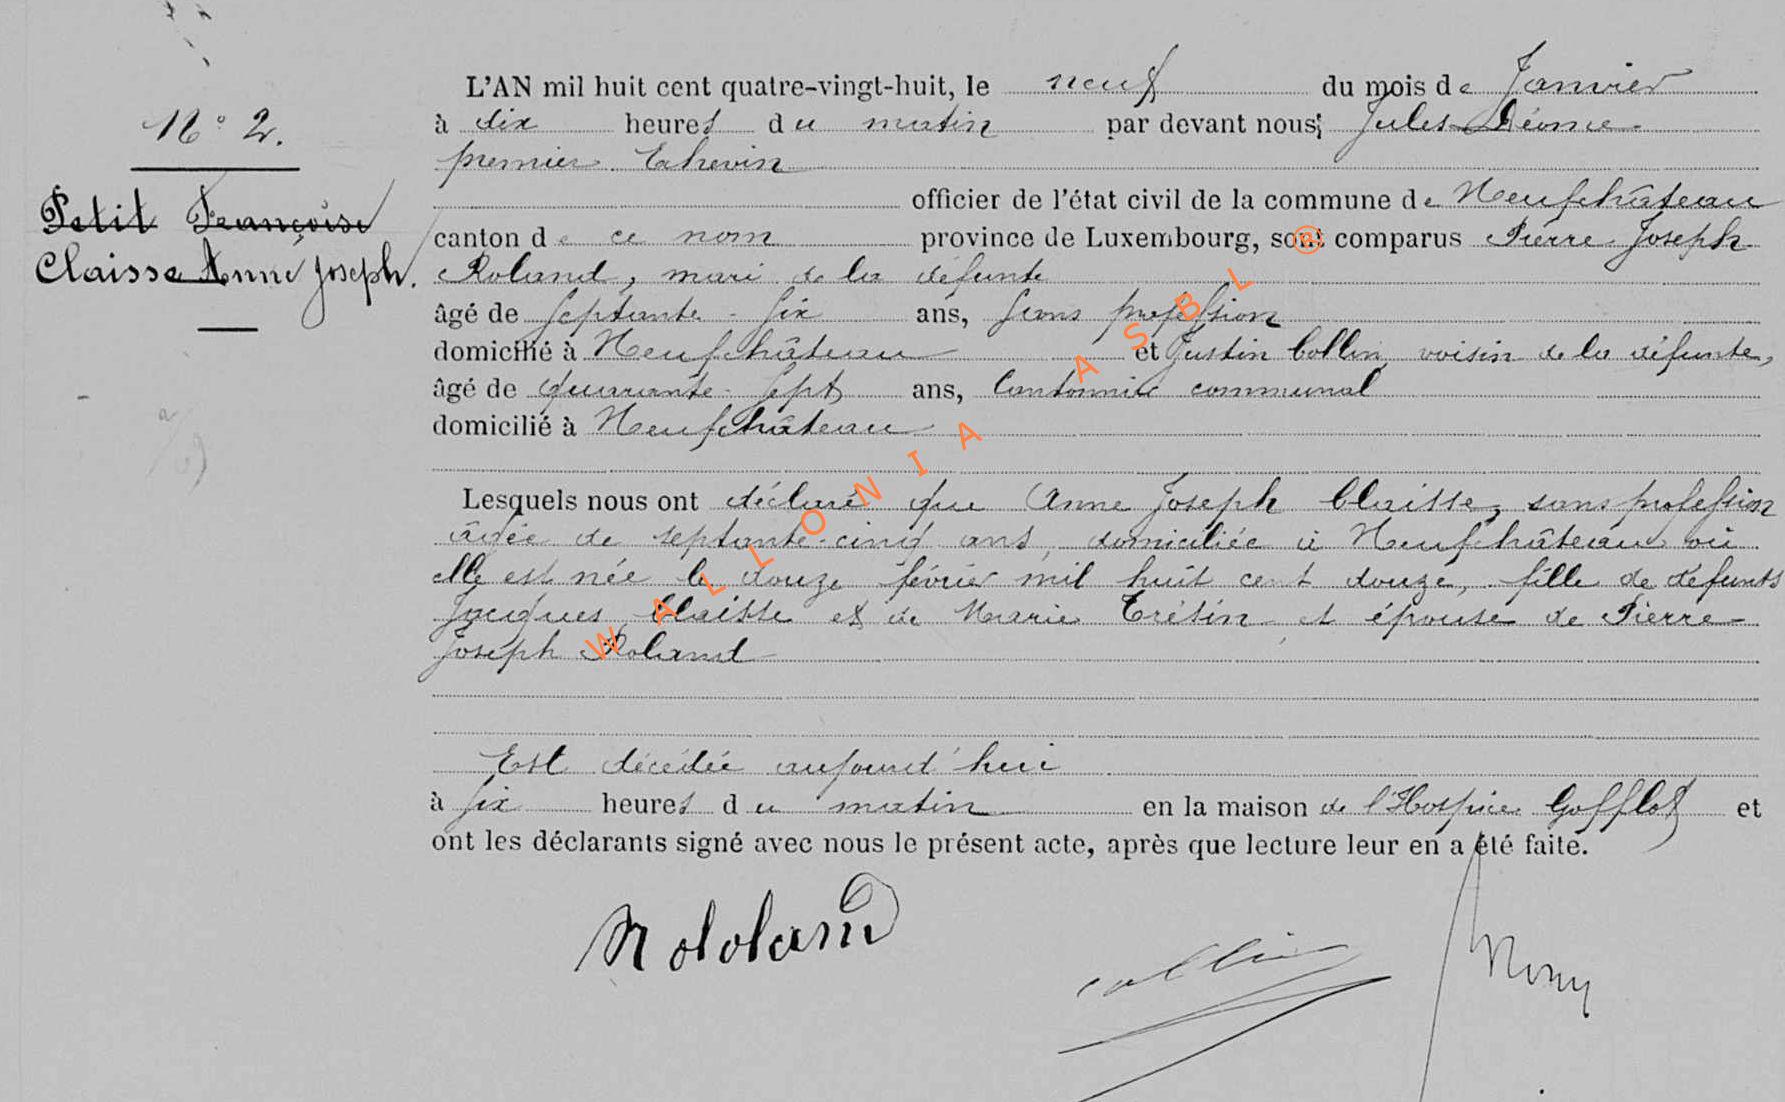 N° 2.
Petit Françoise
Claisse Anne Joseph.
L'AN mil huit cent quatre-vingt-huit, le neuf du mois de Janvier
à dix heures du matin par devant nous, Jules Déome
premier Echevin
officier de l'état civil de la commune de Neufchâteau
canton de ce nom province de Luxembourg, sont comparus Pierre Joseph
Roland, mari de la défunte
âgé de septante-six ans, sans profession
domicilié à Neufchâteau et Justin Collin, voisin de la défunte,
âgé de quarante-sept ans, Cantonnier communal
domicilié à Neufchâteau
Lesquels nous ont déclaré que Anne Joseph Claisse, sans profession
âgée de septante-cinq ans, domiciliée à Neufchâteau où
elle est née le douze février mil huit cent douze, fille de défunts
Jacques Claisse et de Marie Crésin et épouse de Pierre
Joseph Roland
Est décédée aujourd'hui
à six heures du matin en la maison de l'Hospice Gofflot et
ont les déclarants signé avec nous le présent acte, après que lecture leur en a été faite.
collin
WALLONIA ASBL ®